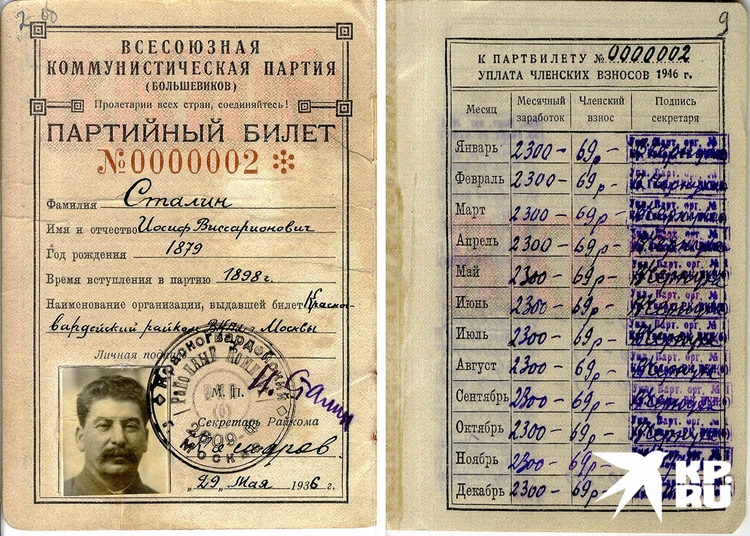 2 00
ВСЕСОЮЗНАЯ
КОММУНИСТИЧЕСКАЯ ПАРТИЯ
(БОЛЬШЕВИКОВ)
Пролетарии всех стран, соединяйтесь!
ПАРТИЙНЫЙ БИЛЕТ
№0000002
Фамилия Сталин
Имя и отчество Иосиф Виссарионович
Год рождения 1879
Время вступления в партию 1898 г.
Наименование организации, выдавшей билет Красно-
гвардейский райком ВКП г. Москвы
Личная подпись И. Сталин
КРАСНОГВАРДЕЙСКИЙ
РАЙОННЫЙ КОМИТЕТ
МОСКВА
М. П.
Секретарь Райкома
"29" Мая 1936 г.
9
К ПАРТБИЛЕТУ №0000002
УПЛАТА ЧЛЕНСКИХ ВЗНОСОВ 1946 г.
Месяц Месячный заработок Членский взнос Подпись секретаря
Январь 2300- 69р-
Февраль 2300- 69р-
Март 2300- 69р-
Апрель 2300- 69р-
Май 2300- 69р-
Июнь 2300- 69р-
Июль 2300- 69р-
Август 2300- 69р-
Сентябрь 2300- 69р-
Октябрь 2300- 69р-
Ноябрь 2300- 69р-
Декабрь 2300- 69р-
KP.RU